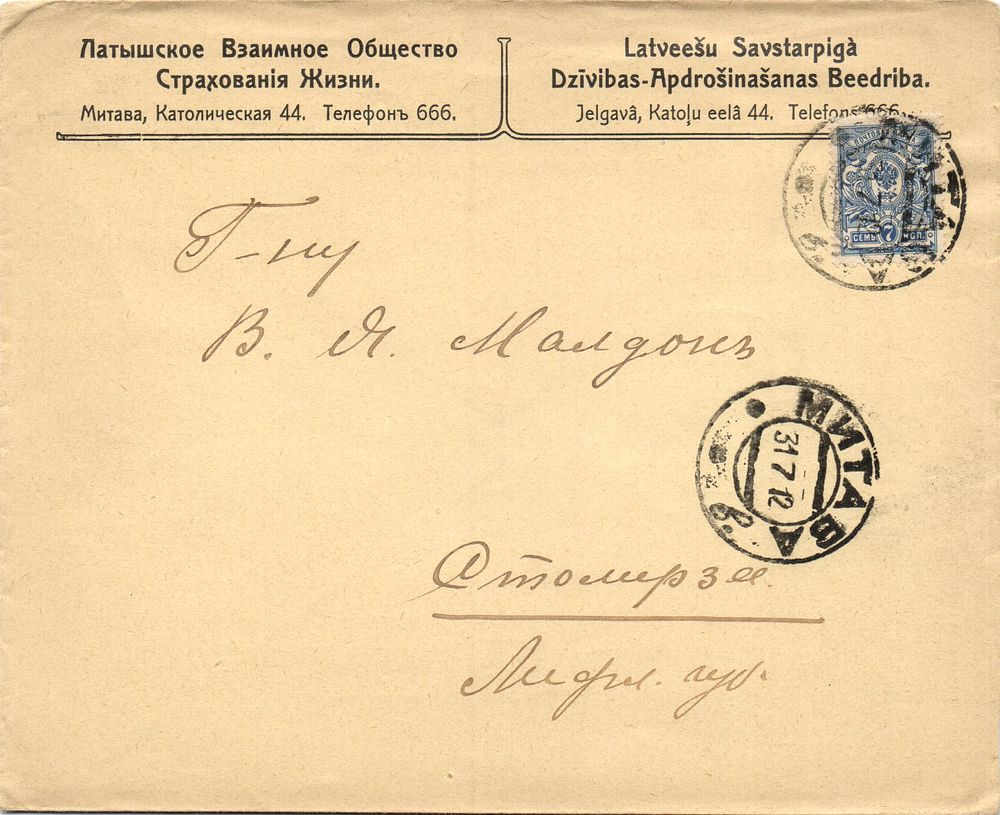 Латышское Взаимное Общество
Страхованія Жизни.
Митава, Католическая 44. Телефонъ 666.
Latveešu Savstarpigà
Dzīvibas-Apdrošinašanas Beedriba.
Jelgavâ, Katoļu eelâ 44. Telefons 666.
СЕМЬ 7 КОП.
Г-ну
В. Я. Малдонъ
МИТАВА
31 7 12
Стомерзее.
Лифл. губ.